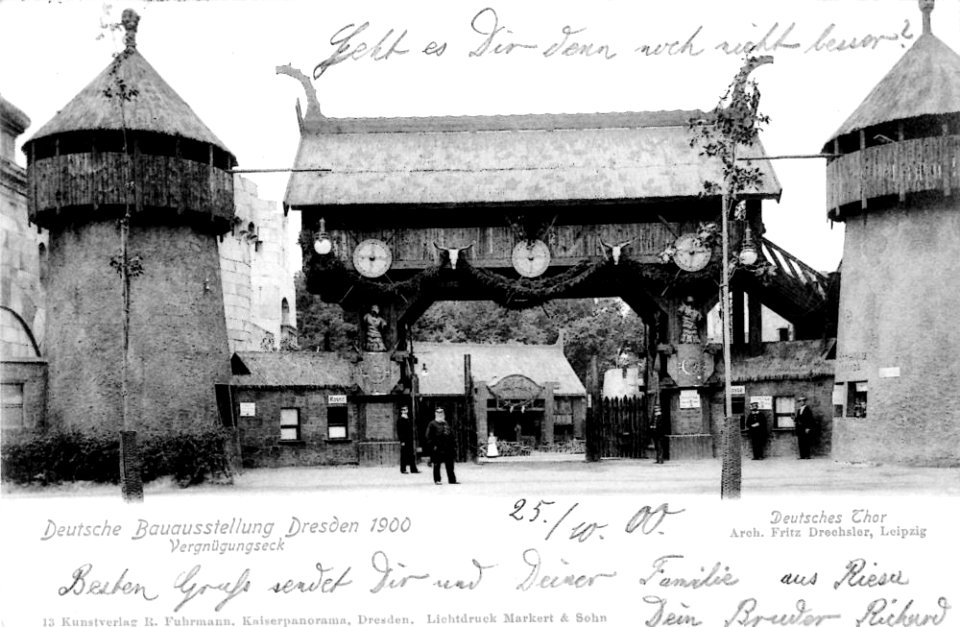 Geht es Dir denn noch nicht besser?
Kasse
Deutsche Bauausstellung Dresden 1900
Vergnügungseck
25./10. 00.
Deutsches Thor
Arch. Fritz Drechsler, Leipzig
Besten Gruß sendet Dir und Deiner Familie aus Riesa
Dein Bruder Richard
13 Kunstverlag R. Fuhrmann, Kaiserpanorama, Dresden. Lichtdruck Markert & Sohn